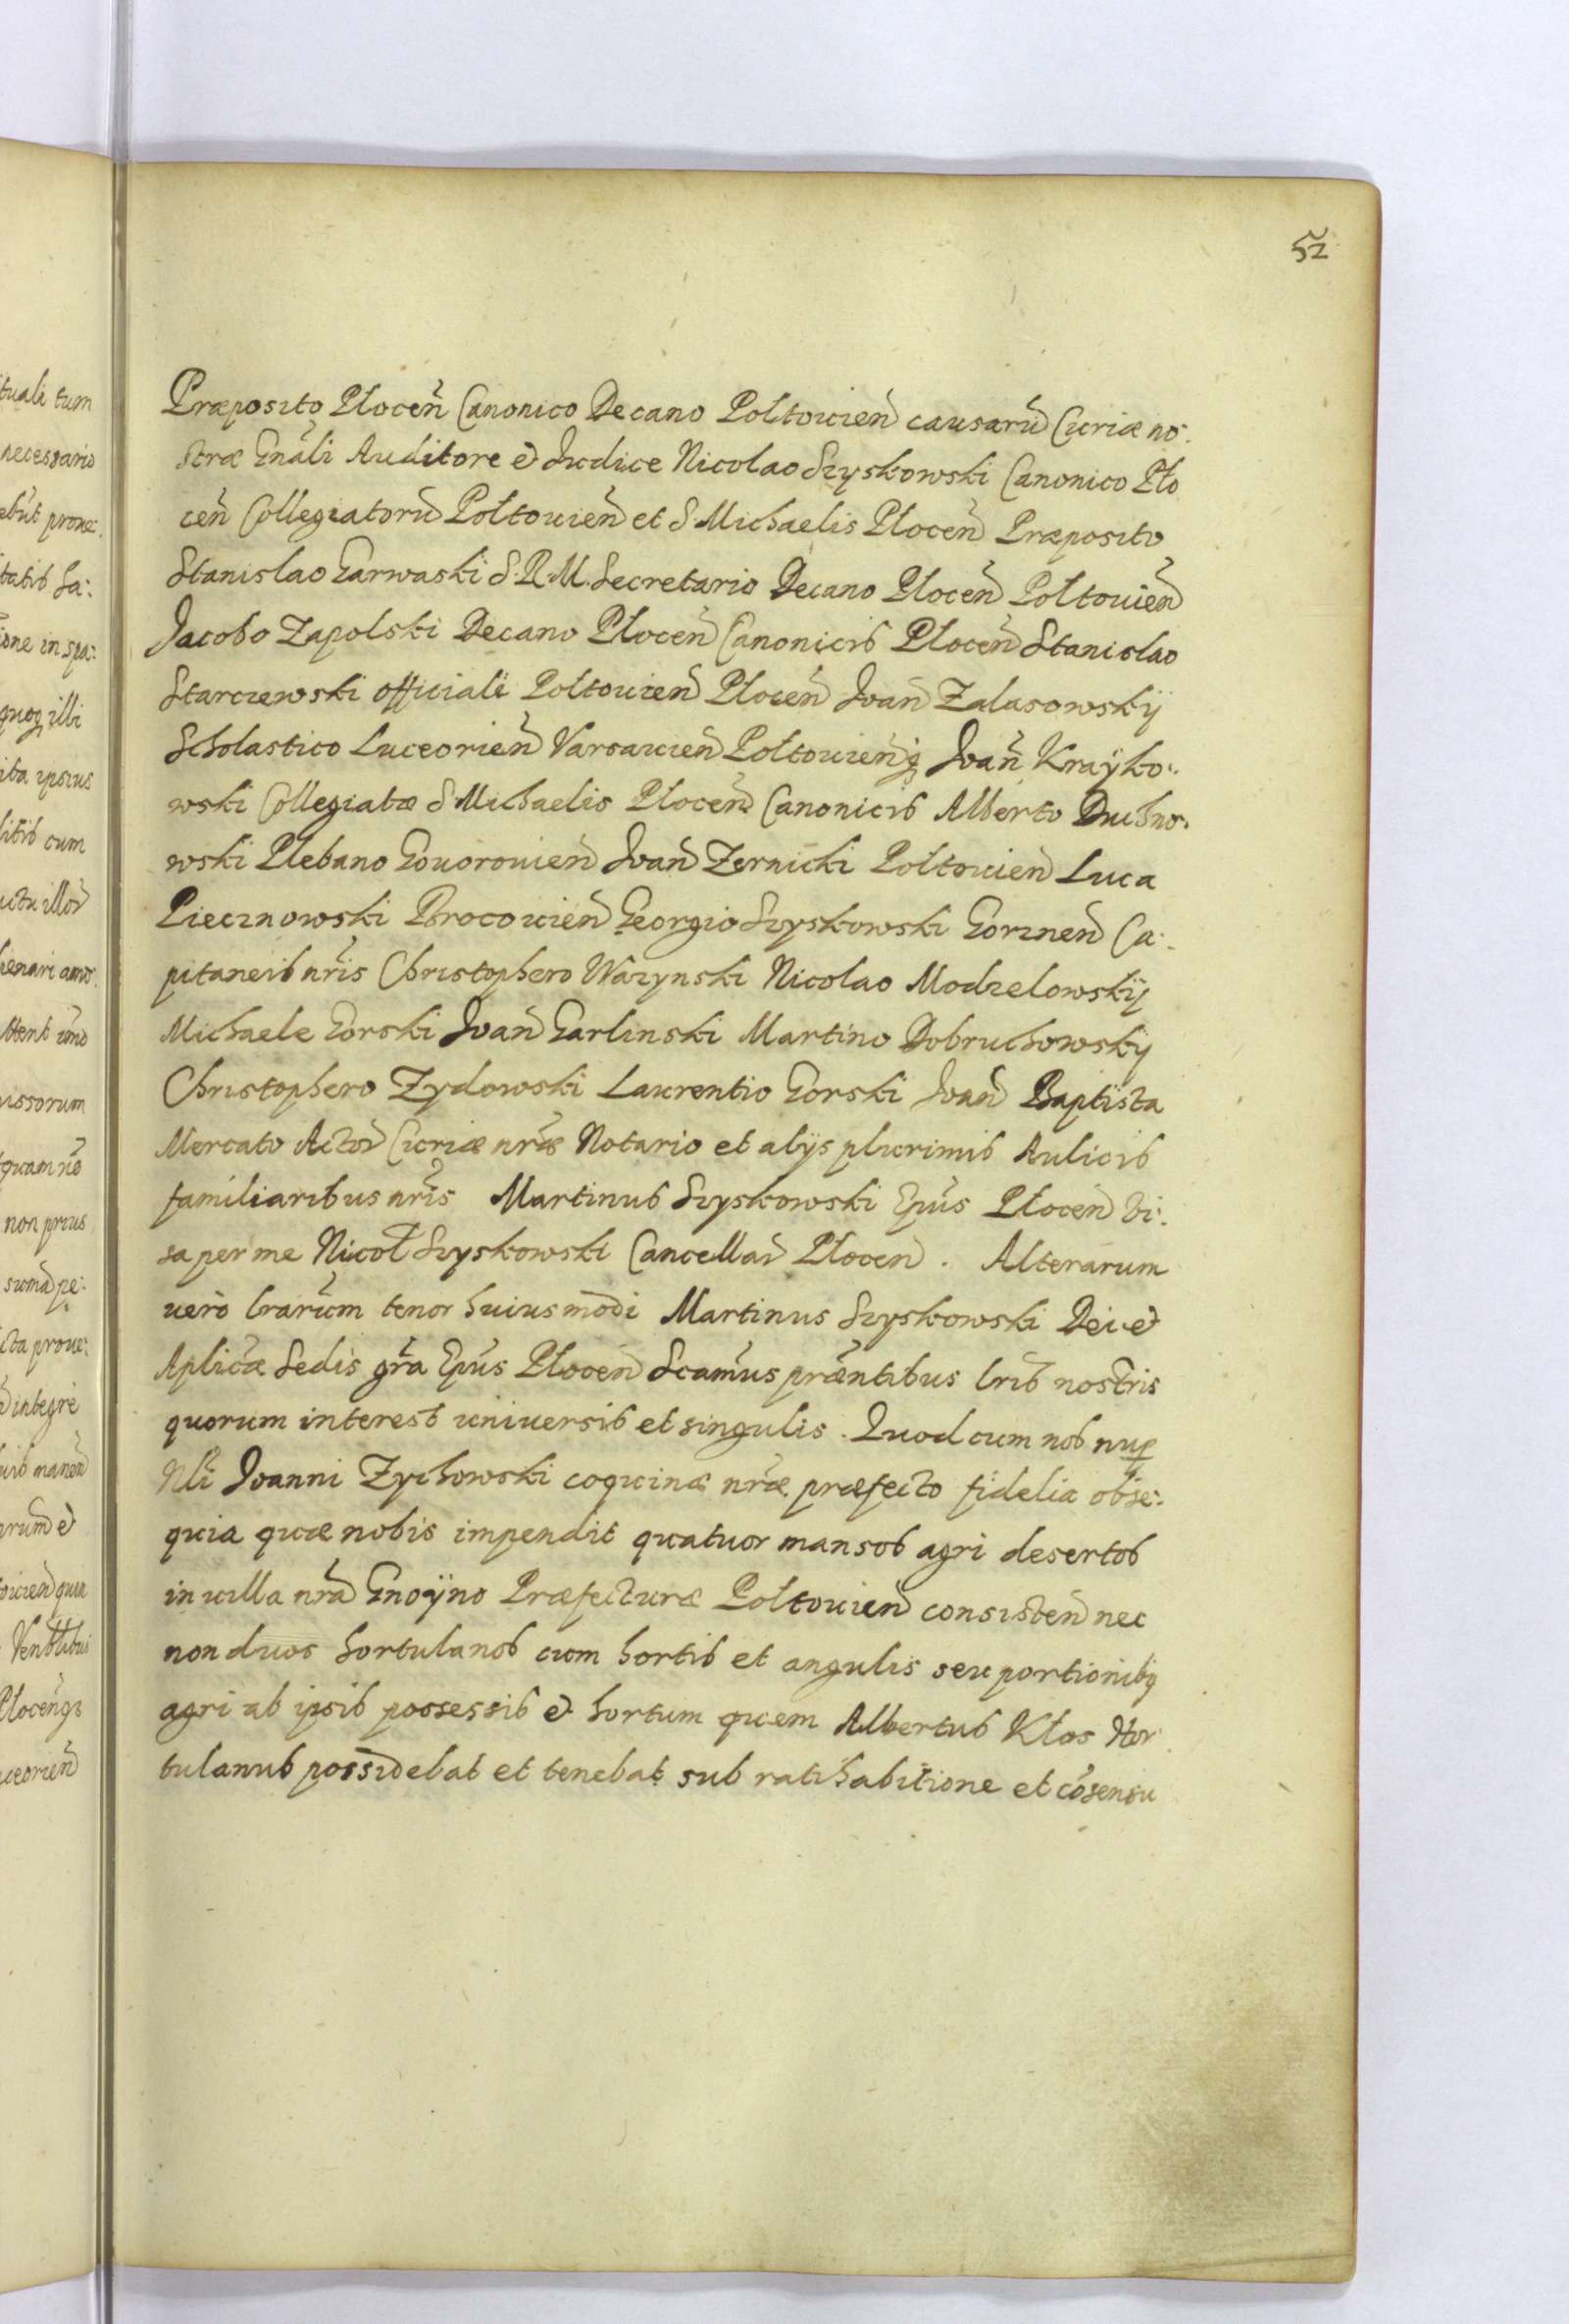 52
Præposito Plocen̄ Canonico Decano Poltouien̄ causarū Curiæ no-
stræ Gnāli Auditore et Judice Nicolao Szyskowski Canonico Plo
cen̄ Collegiatorū Poltouien̄ et S Michaelis Plocen̄ Præposito
Stanislao Garwaski S. R. M. Secretario Decano Plocen̄ Poltouien̄
Jacobo Zapolski Decano Plocen̄ Canonicis Plocen̄ Stanislao
Starczewski officiali Poltouien̄ Plocen̄ Joan̄ Zalasowskij
Scholastico Luceorien̄ Varsauien̄ Poltouien̄q Joan̄ Kraÿko-
wski Collegiatæ S Michaelis Plocen̄ Canonicis Alberto Duchno-
wski Plebano Gouorouien̄ Joan̄ Zernicki Poltouien̄ Luca
Piecznowski Brocouien̄ Georgio Szyskowski Gorznen̄ Ca-
pitaneis nr̄is Christophero Wazynski Nicolao Modzelowskij
Michaele Gorski Joan̄ Garlinski Martino Dobruchowskij
Christophero Zydowski Laurentio Gorski Joan̄ Baptista
Mercato Actor̄ Curiæ nr̄æ Notario et alijs plurimis Aulicis
familiaribus nr̄is Martinus Szyskowski Ep̄us Plocen̄ Vi-
sa per me Nicol̄ Szyskowski Cancellar̄ Plocen̄. Alterarum
uerò lrārum tenor huiusmodi Martinus Szyskowski Dei et
Aplicæ Sedis gr̄a Ep̄us Plocen̄ Scamus præntibus lrīs nostris
quorum interest uniuersis et singulis. Quod cum nos nup
Nli Joanni Zychowski coquinæ nr̄æ præfecto fidelia obse-
quia quæ nobis impendit quatuor mansos agri desertos
in uilla nr̄a Gnoÿno Præfecturæ Poltouien̄ consisten̄ nec
non duos hortulanos cum hortis et angulis seu portionibq
agri ab ipsis possessis et hortum quem Albertus Klos Hor
tulanus possidebat et tenebat sub ratihabitione et cōsensu